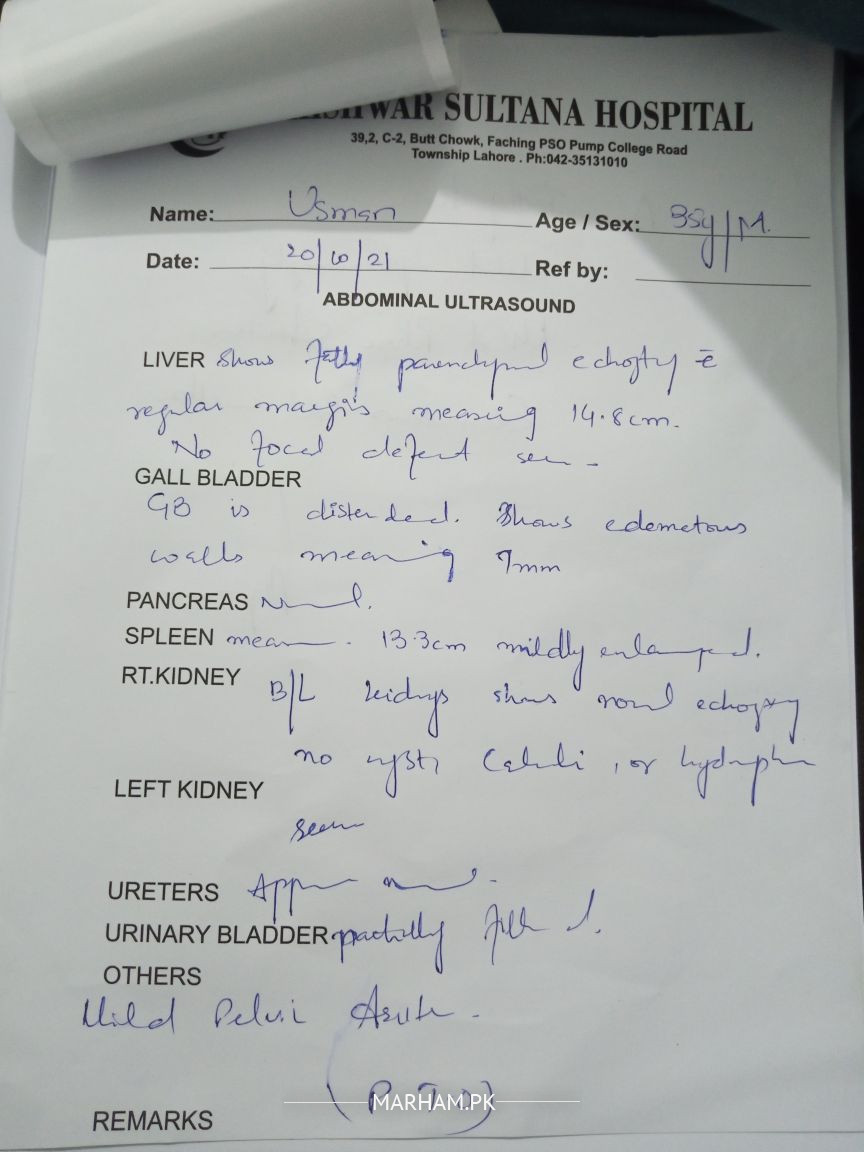 SULTANA HOSPITAL
39,2, C-2, Butt Chowk, Faching PSO Pump College Road
Township Lahore . Ph:042-35131010
Name: Usman Age / Sex: 35y/M.
Date: 20/10/21 Ref by:
ABDOMINAL ULTRASOUND
LIVER Shows Fatty parenchymal c̄
regular margins measuring 14.8cm.
No focal defect seen -
GALL BLADDER
GB is distended. Shows edemetous
walls meauring 7mm
PANCREAS
SPLEEN 13.3cm mildly enlarged.
RT.KIDNEY B/L kidneys shows
no Calculi, or
LEFT KIDNEY
seen
URETERS
URINARY BLADDER partially filled.
OTHERS
Mild Pelvic
(P.T.O)
MARHAM.PK
REMARKS